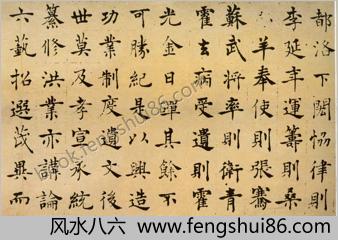 都洛下閎協律則
李延年運籌則桑
羊奉使則張騫
蘇武將率則衛青
霍去病受遺則霍
光金日磾其餘不
可勝紀是以興造
功業制度遺文後
世莫及孝宣承統
纂修洪業亦講論
六藝招選茂異而
book.fengshui86.com
风水八六 www.fengshui86.com